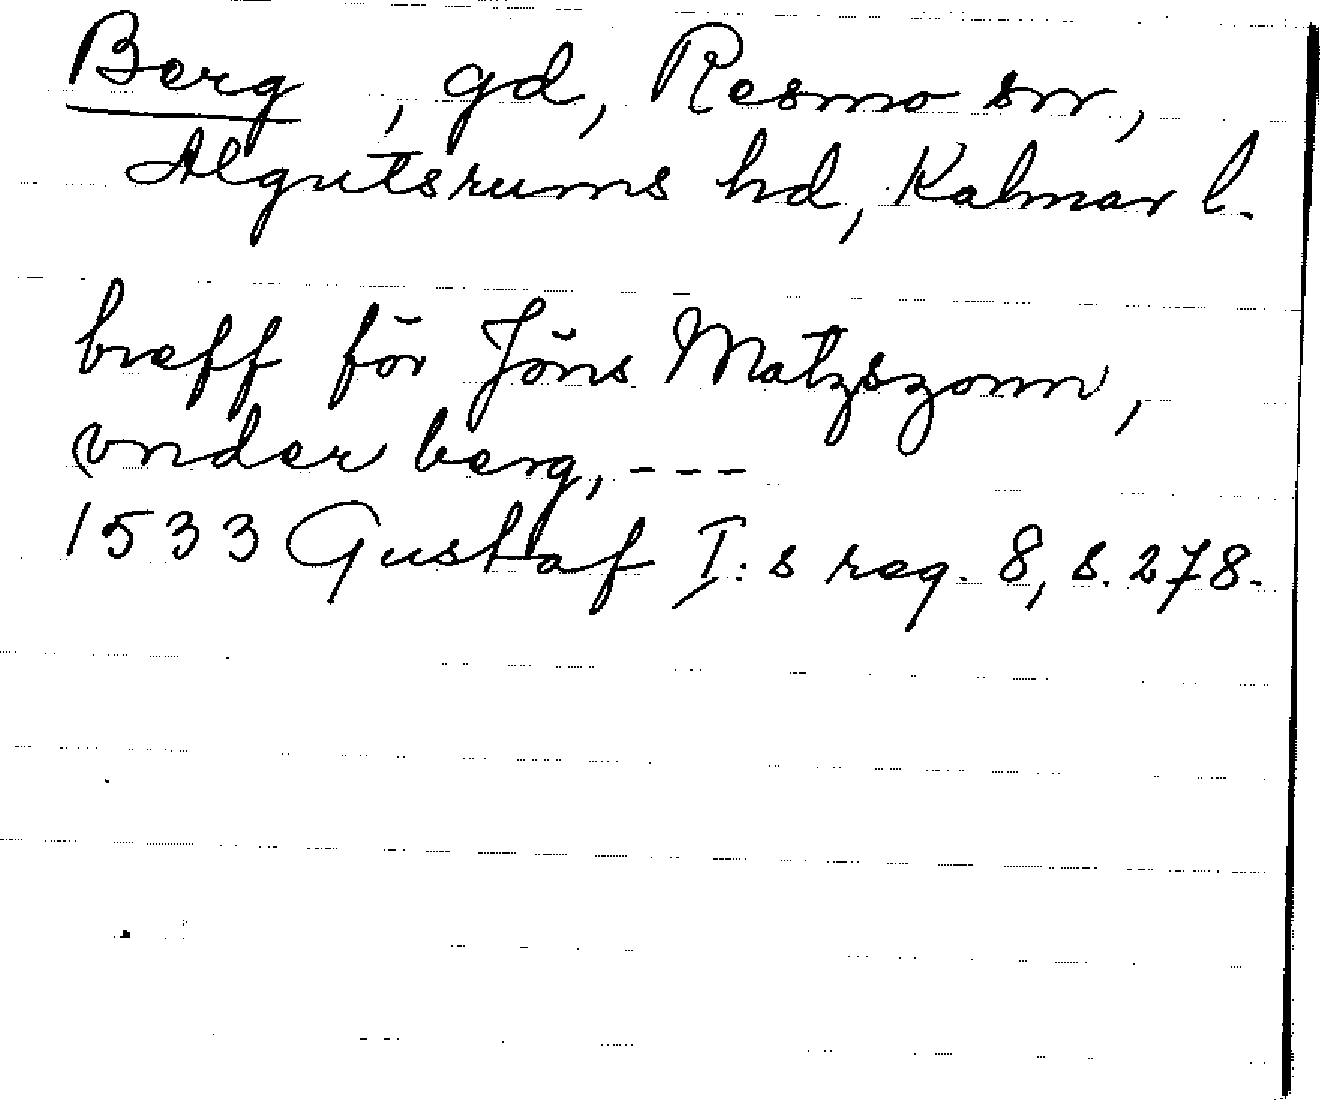 Berg, gd, Resmo sn,
Algutsrums hd, Kalmar l.
breff för Jöns Matzszonn,
vnder berg, ---
1533 Gustaf I:s reg. 8, s. 278.